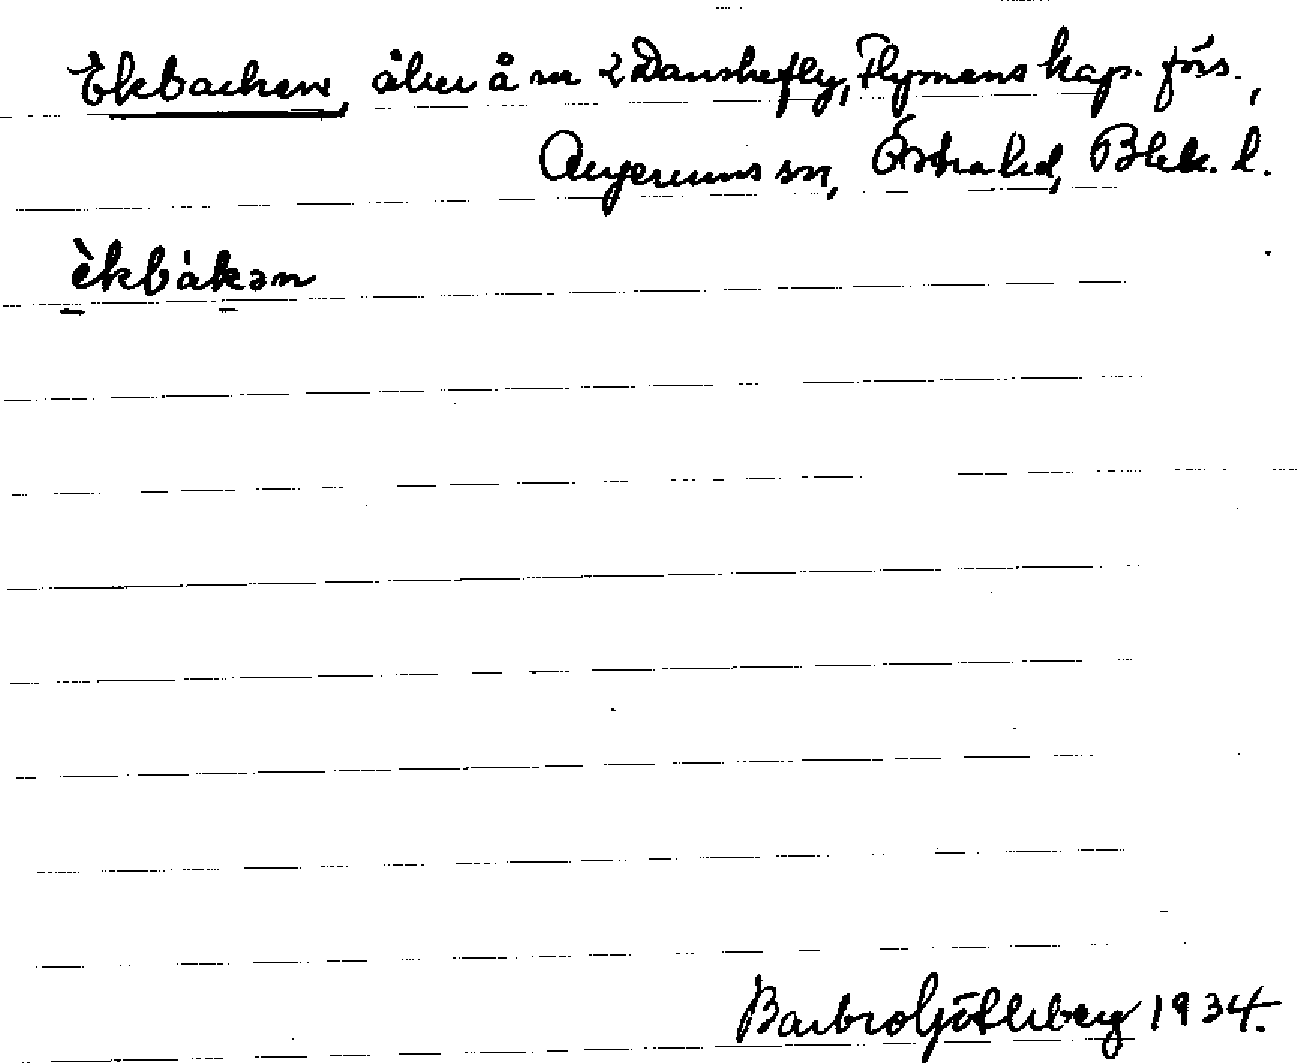 Ekbacken, åker å nr 2 Danskefly, Flymens kap. förs.,
Augerums sn, Östra hd, Blek. l.
èkbàkən
Barbro Götleberg 1934.